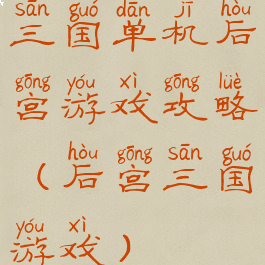 sān guó dān jī hòu
三国单机后
gōng yóu xì gōng lüè
宫游戏攻略
hòu gōng sān guó
（后宫三国
yóu xì
游戏）